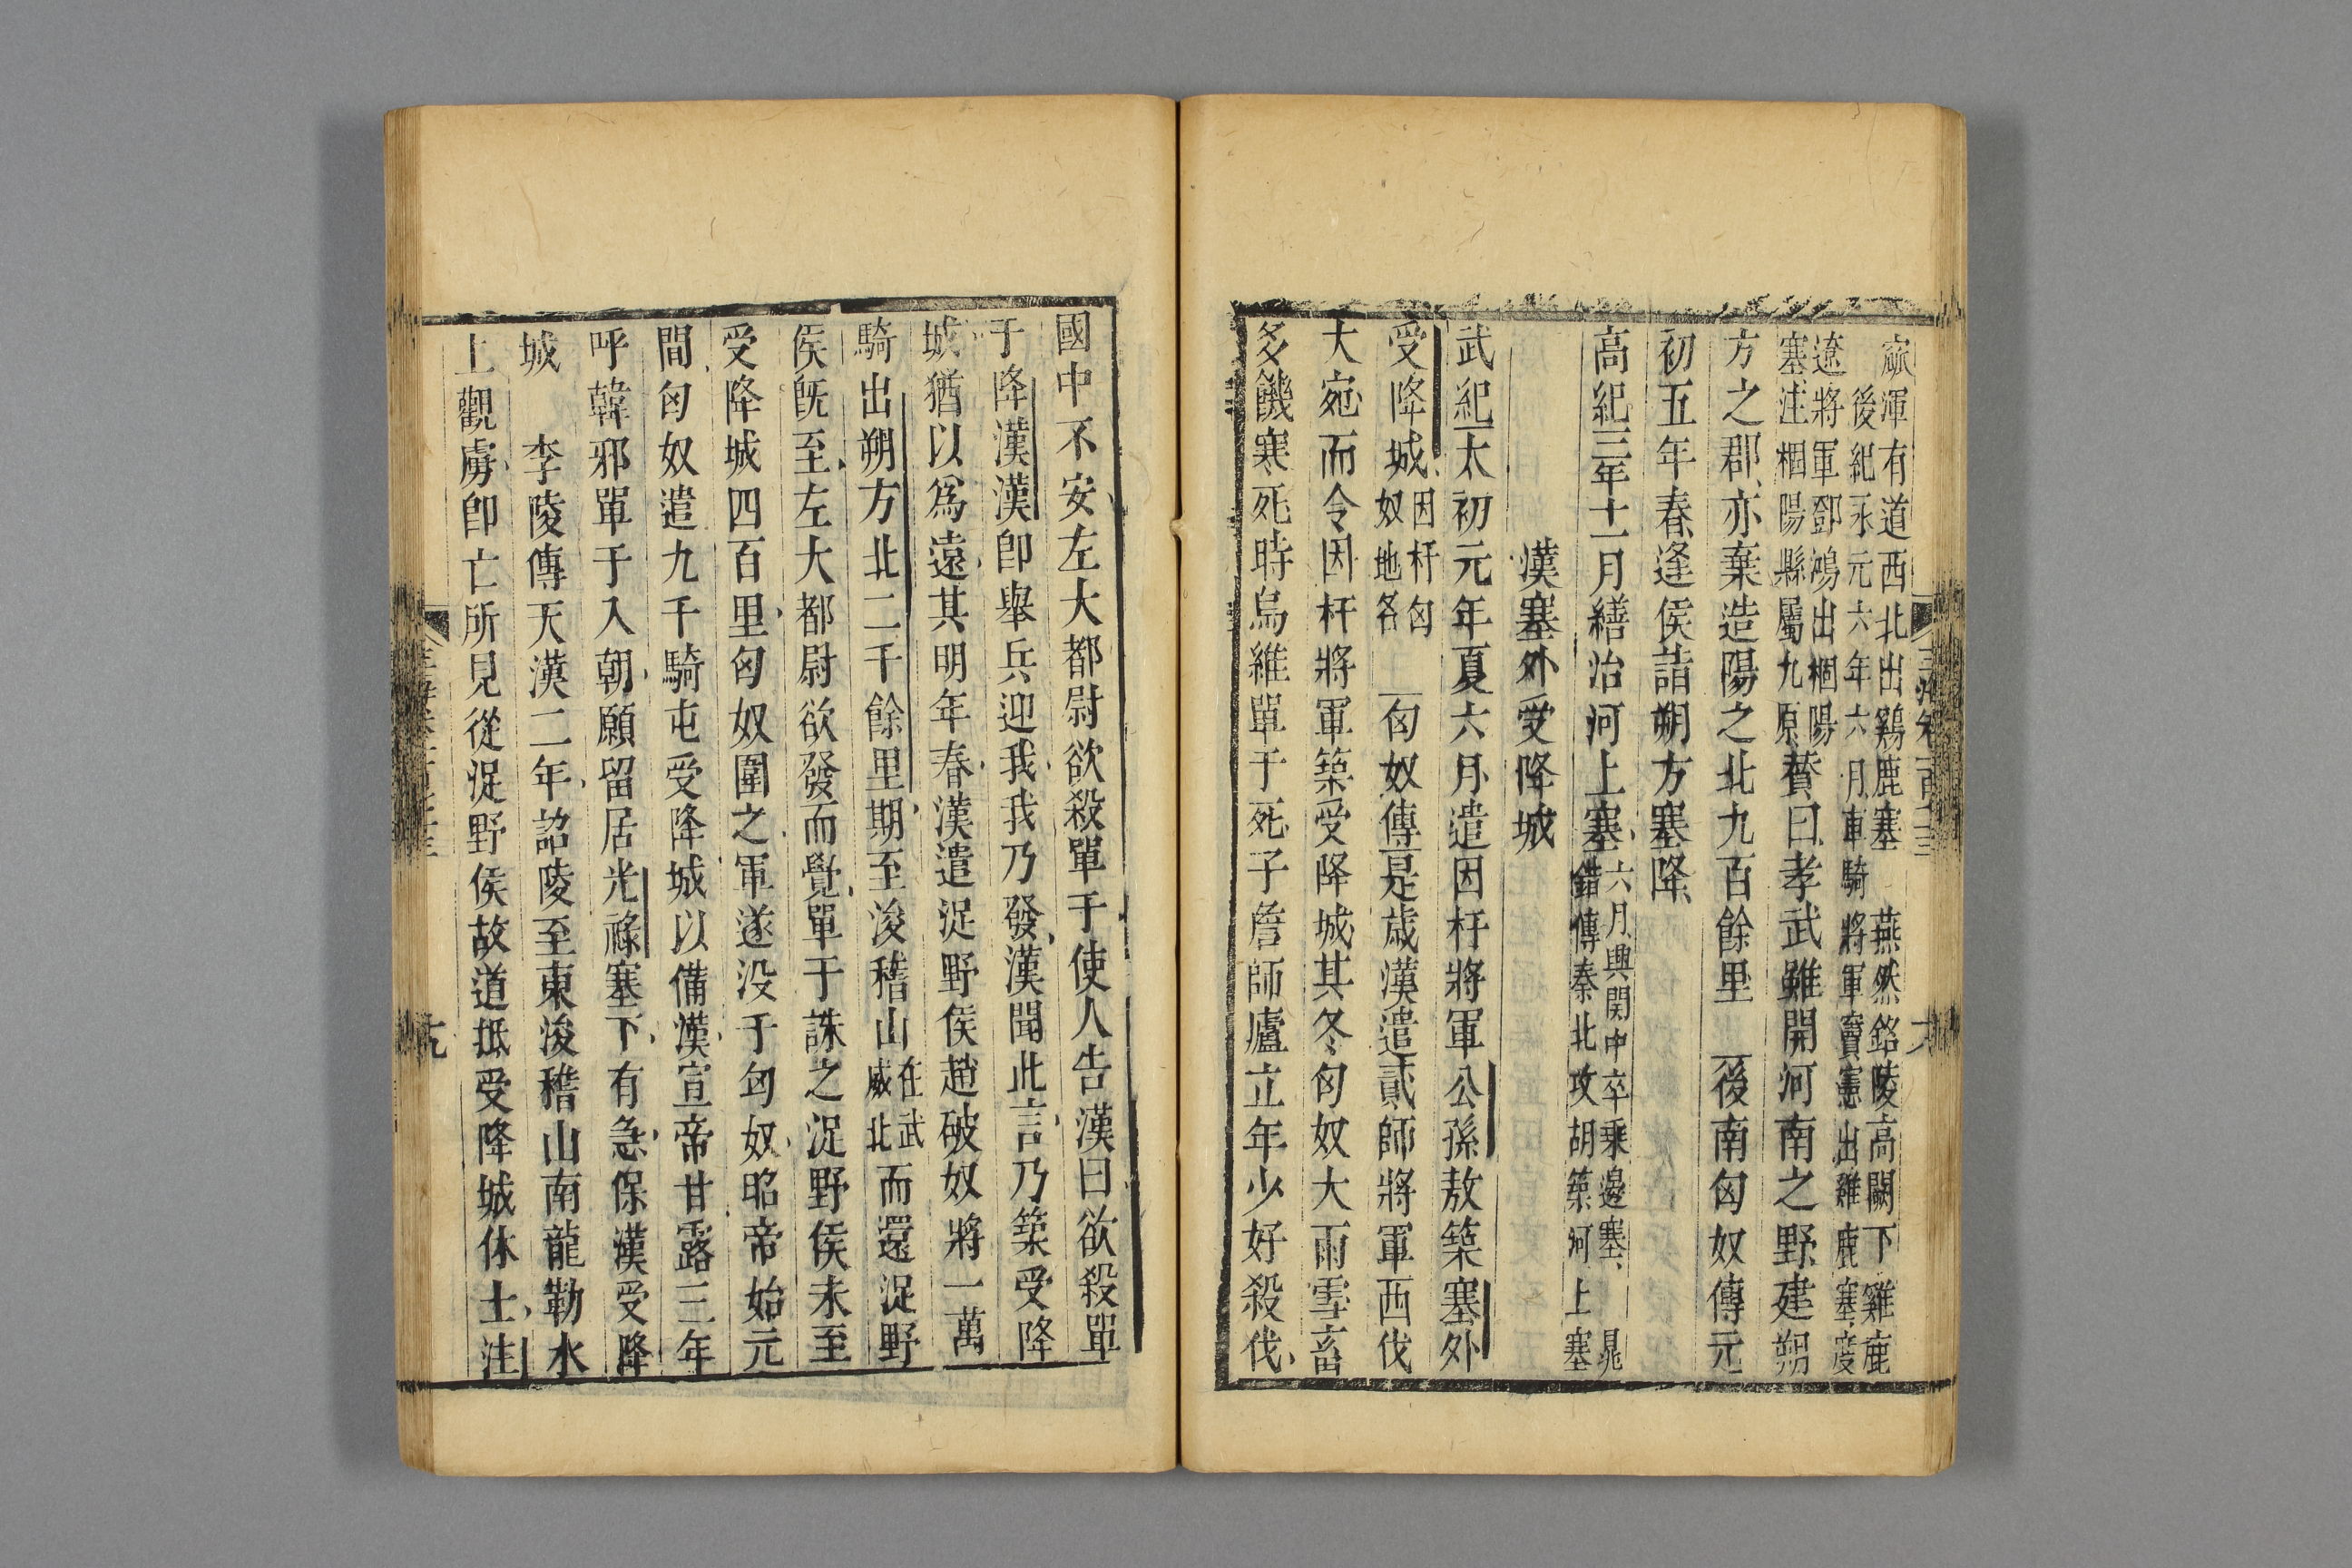 窳渾有道西北出鷄鹿塞 燕然銘陵高闕下雞鹿
後紀永元六年六月車騎將軍竇憲出雞鹿塞度
遼將軍鄧鴻出稒陽
塞注稒陽縣屬九原 贊曰孝武雖開河南之野建朔
方之郡亦棄造陽之北九百餘里 後南匈奴傳元
初五年春逢侯詣朔方塞降
高紀三年十一月繕治河上塞 六月興関中卒乗邊塞 晁
錯傳秦北攻胡築河上塞
漢塞外受降城
武紀太初元年夏六月遣因杅將軍公孫敖築塞外
受降城 因杅匈
奴地名 匈奴傳是歳漢遣貳師將軍西伐
大宛而令因杅將軍築受降城其冬匈奴大雨雪畜
多饑寒死時烏維單于死子詹師廬立年少好殺伐
國中不安左大都尉欲殺單于使人告漢曰欲殺單
于降漢漢卽舉兵迎我我乃發漢聞此言乃築受降
城猶以爲遠其明年春漢遣浞野侯趙破奴將一萬
騎出朔方北二千餘里期至浚稽山 在武
威北 而還浞野
侯旣至左大都尉欲發而覺單于誅之浞野侯未至
受降城四百里匈奴圍之軍遂没于匈奴昭帝始元
間匈奴遣九千騎屯受降城以備漢宣帝甘露三年
呼韓邪單于入朝願留居光祿塞下有急保漢受降
城 李陵傳天漢二年詔陵至東浚稽山南龍勒水
上觀虜卽亡所見從浞野侯故道抵受降城休士注